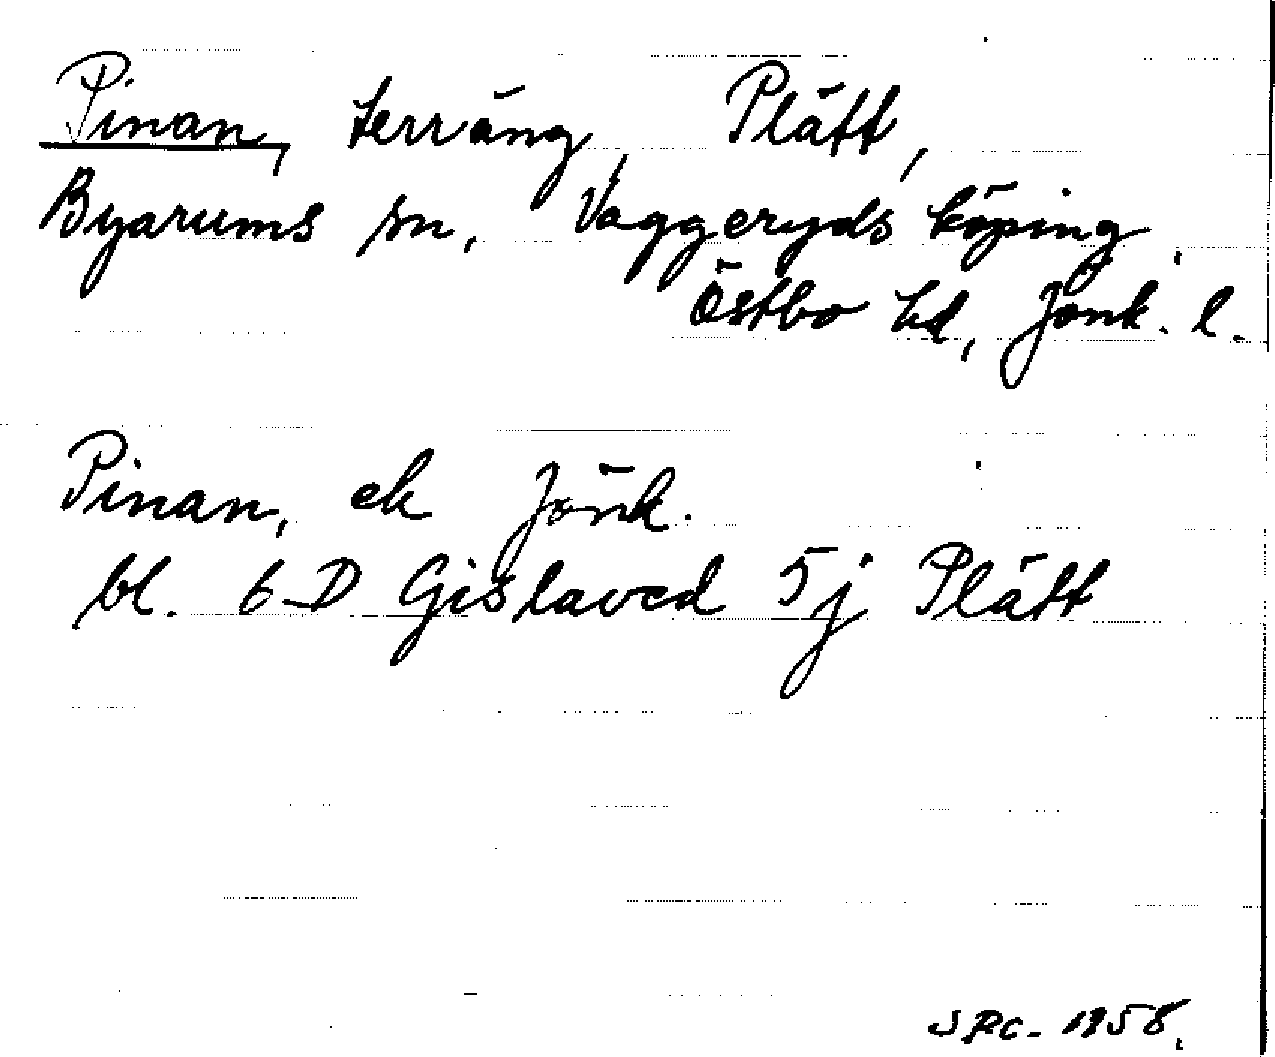 Pinan, terräng, Plätt,
Byarums sn, Vaggeryds köping,
Östbo hd, Jönk. l.
Pinan, ek Jönk.
bl. 6 D Gislaved 5j Plätt
SRC. 1958.